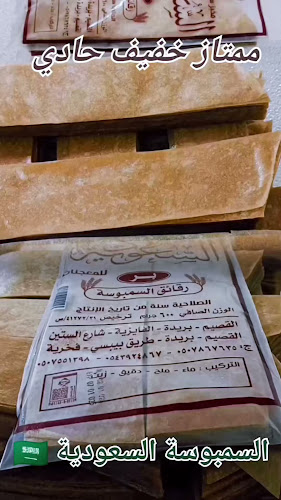 ممتاز خفيف حادي
السعودية
للمعجنات
بر
رقائق السمبوسة
الصلاحية سنة من تاريخ الإنتاج
الوزن الصافي ٦٠٠ جرام ترخيص
القصيم - بريدة - الفايزية - شارع الستين
القصيم - بريدة - طريق بيبسي - فخرية
ج: ٠٥٠٧٨٦٧٦٢٥
٠٥٤٣٩٢٤٨٦٧ - ٠٥٠٧٥٥١٣٩٨
التركيب: ماء - ملح - دقيق - زيت
السمبوسة السعودية